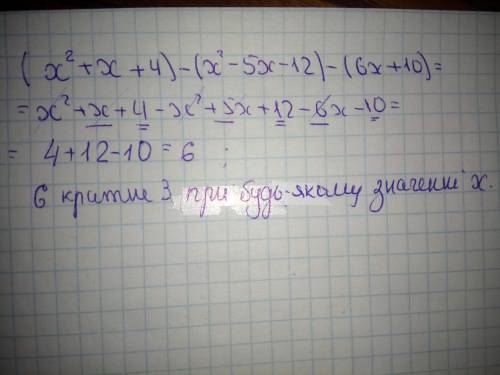 (x² + x + 4) - (x² - 5x - 12) - (6x + 10) =
= x² + x + 4 - x² + 5x + 12 - 6x - 10 =
= 4 + 12 - 10 = 6 ;
6 кратне 3 при будь-якому значенні x.